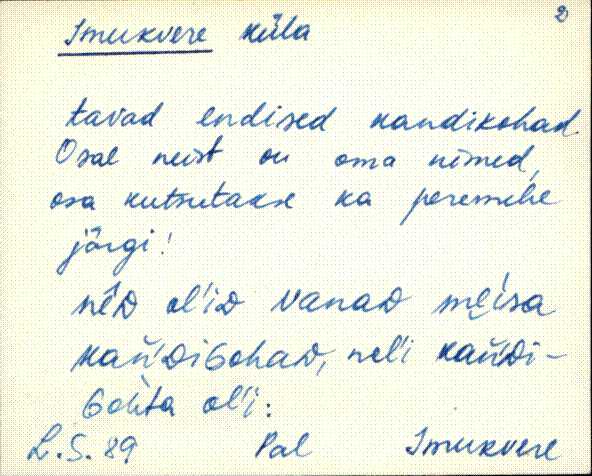 2
Imukvere küla
tavad endised kandikohad.
Osal neist on oma nimed,
osa kutsutakse ka peremehe
järgi!
nēᴅ ol'iᴅ vanaᴅ mẹ́isa
kan̆'ᴅiɢohaᴅ, nel'i kan̆'ᴅi-
ɢohta ol'i:
L.S. 89 Pal Imukvere